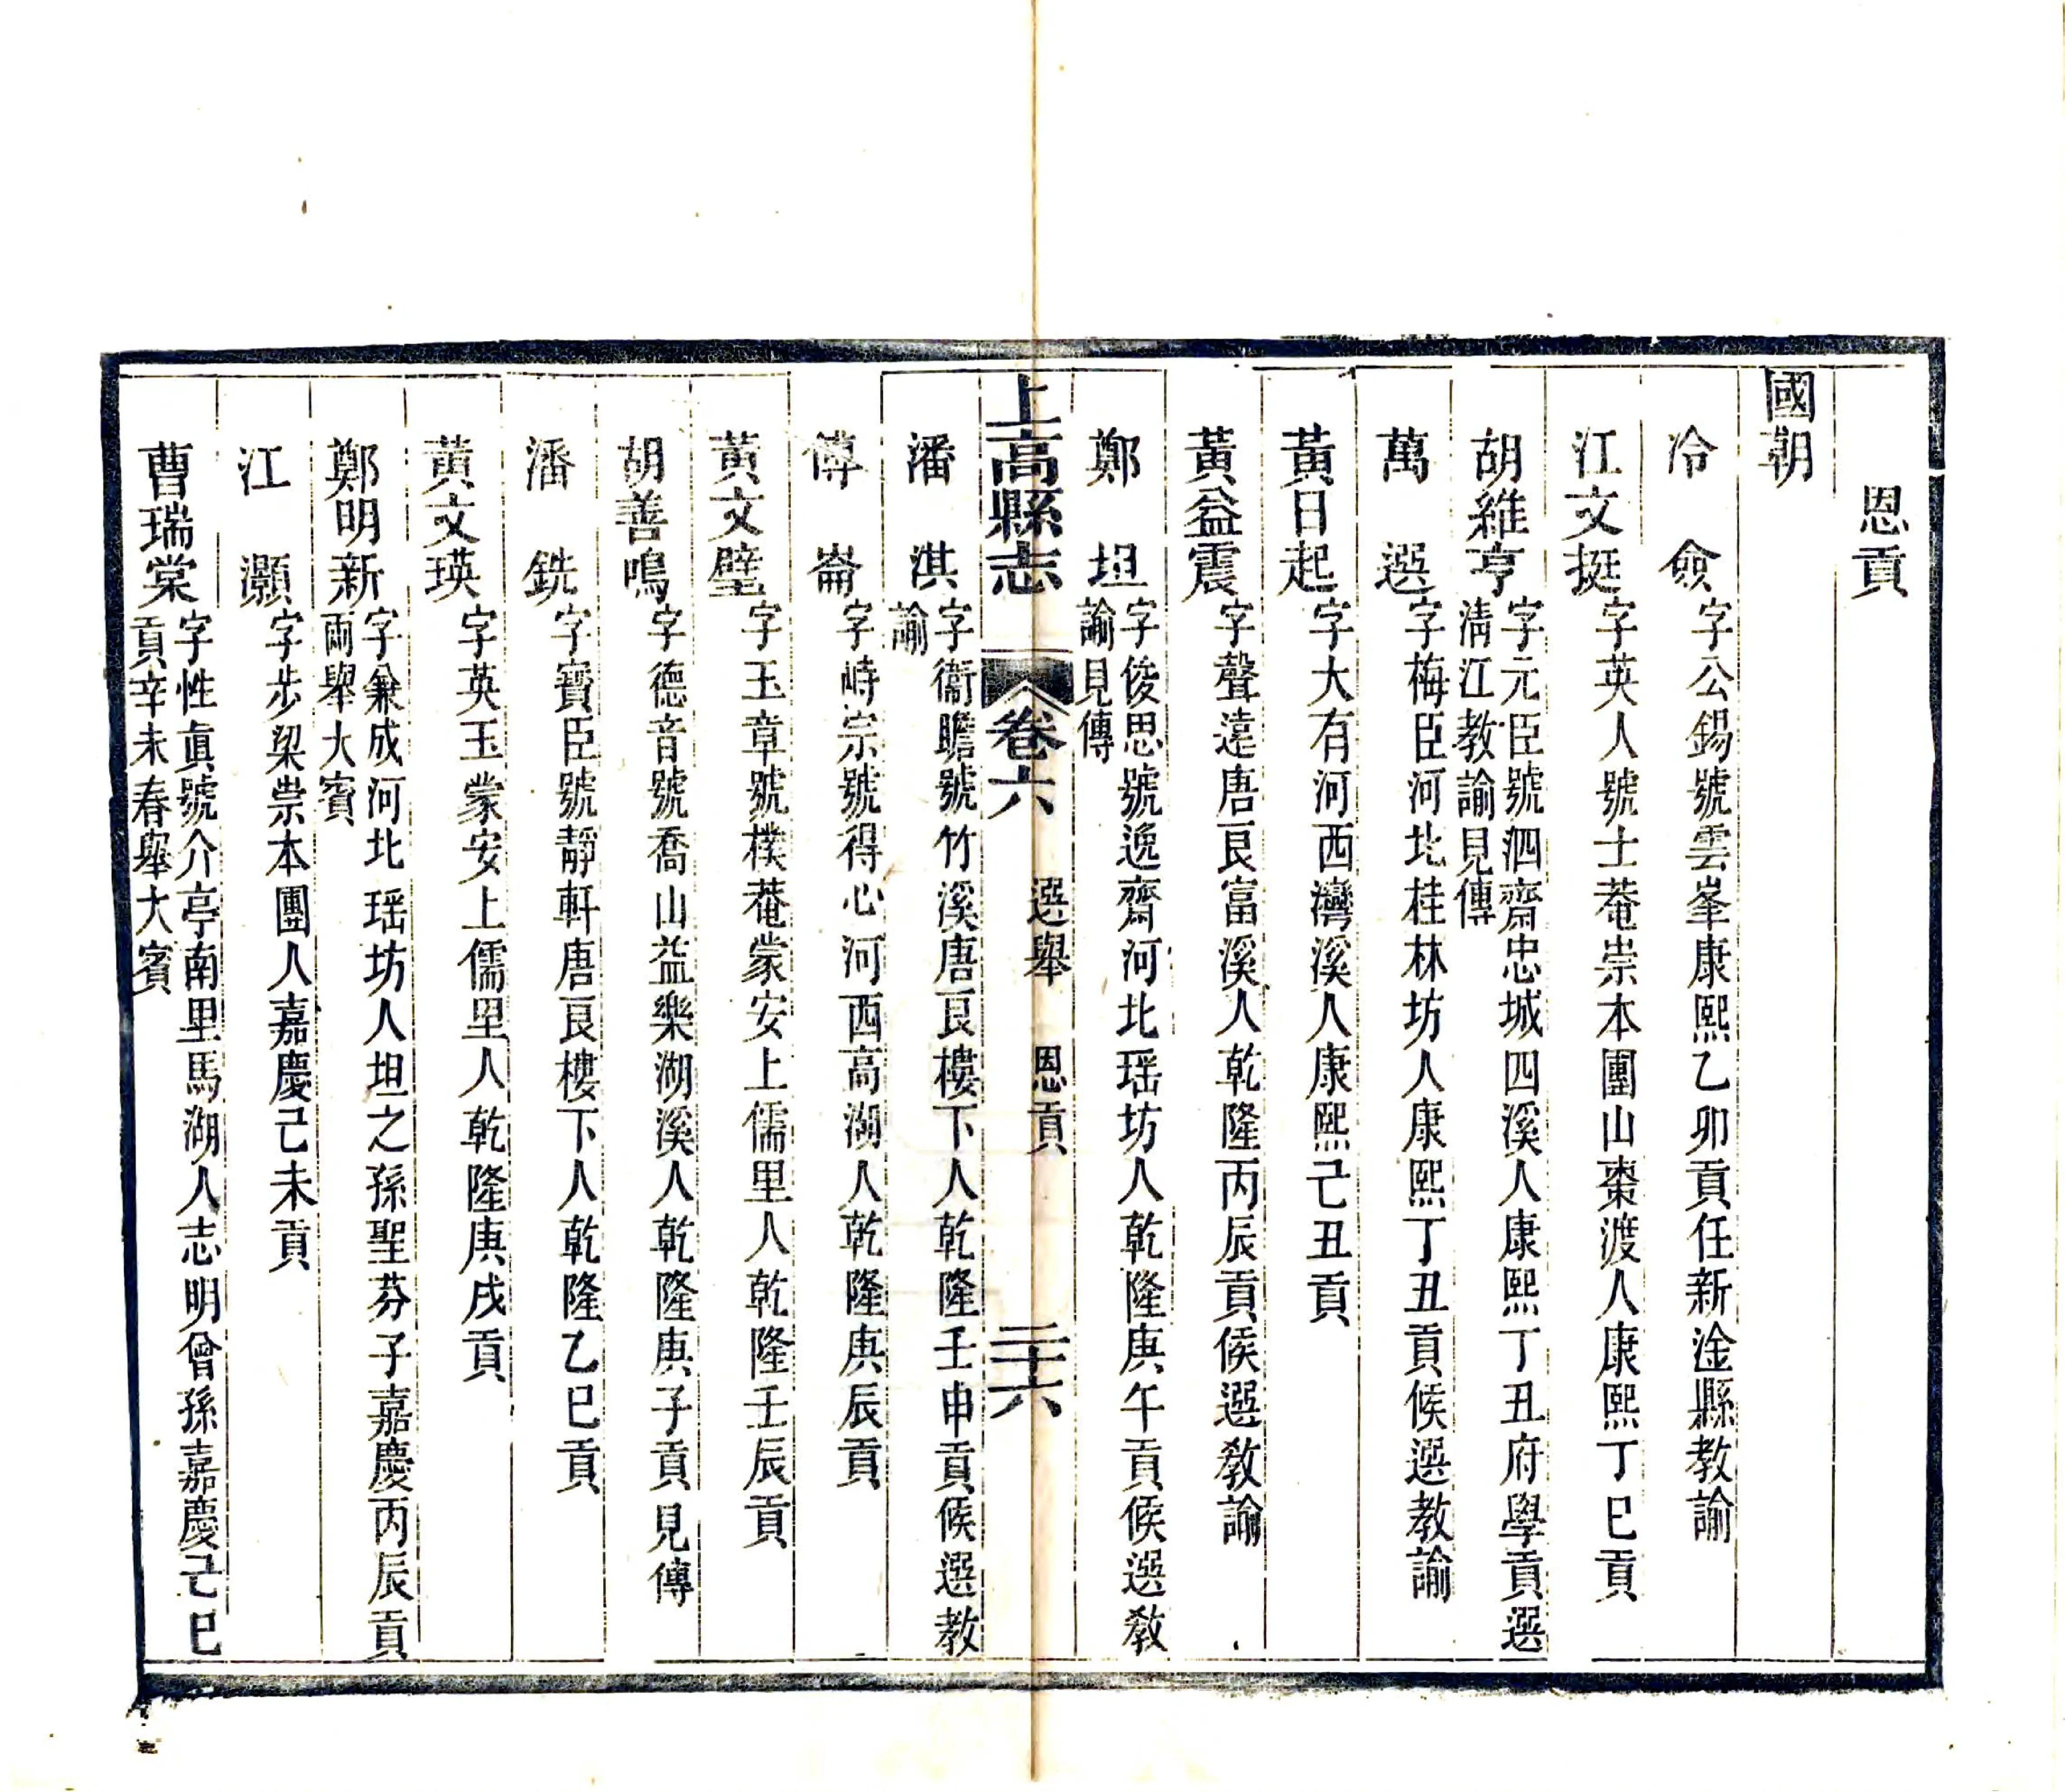 恩貢
國朝
冷僉 字公錫號雲峯康熙乙卯貢任新淦縣教諭
江文挺 字英人號士菴崇本團山棗渡人康熙丁巳貢
胡維亨 字元臣號泗齋忠城四溪人康熙丁丑府學貢選
清江教諭見傳
萬選 字梅臣河北桂林坊人康熙丁丑貢候選教諭
黃日起 字大有河西灣溪人康熙己丑貢
黃益震 字聲遠唐良富溪人乾隆丙辰貢候選教諭
鄭坦 字俊思號逸齋河北瑶坊人乾隆庚午貢候選教
諭見傳
上高縣志 卷六 選舉 恩貢 二十六
潘淇 字衞瞻號竹溪唐良樓下人乾隆壬申貢候選教
諭
傅崙 字峙宗號得心河西高湖人乾隆庚辰貢
黃文璧 字玉章號樸菴蒙安上儒里人乾隆壬辰貢
胡善鳴 字德音號喬山益樂湖溪人乾隆庚子貢見傳
潘銑 字寶臣號靜軒唐良樓下人乾隆乙巳貢
黃文瑛 字英玉蒙安上儒里人乾隆庚戌貢
鄭明新 字兼成河北瑶坊人坦之孫聖芬子嘉慶丙辰貢
兩舉大賓
江灝 字步梁崇本團人嘉慶己未貢
曹瑞棠 字性眞號介亭南里馬湖人志明曾孫嘉慶己巳
貢辛未春舉大賓